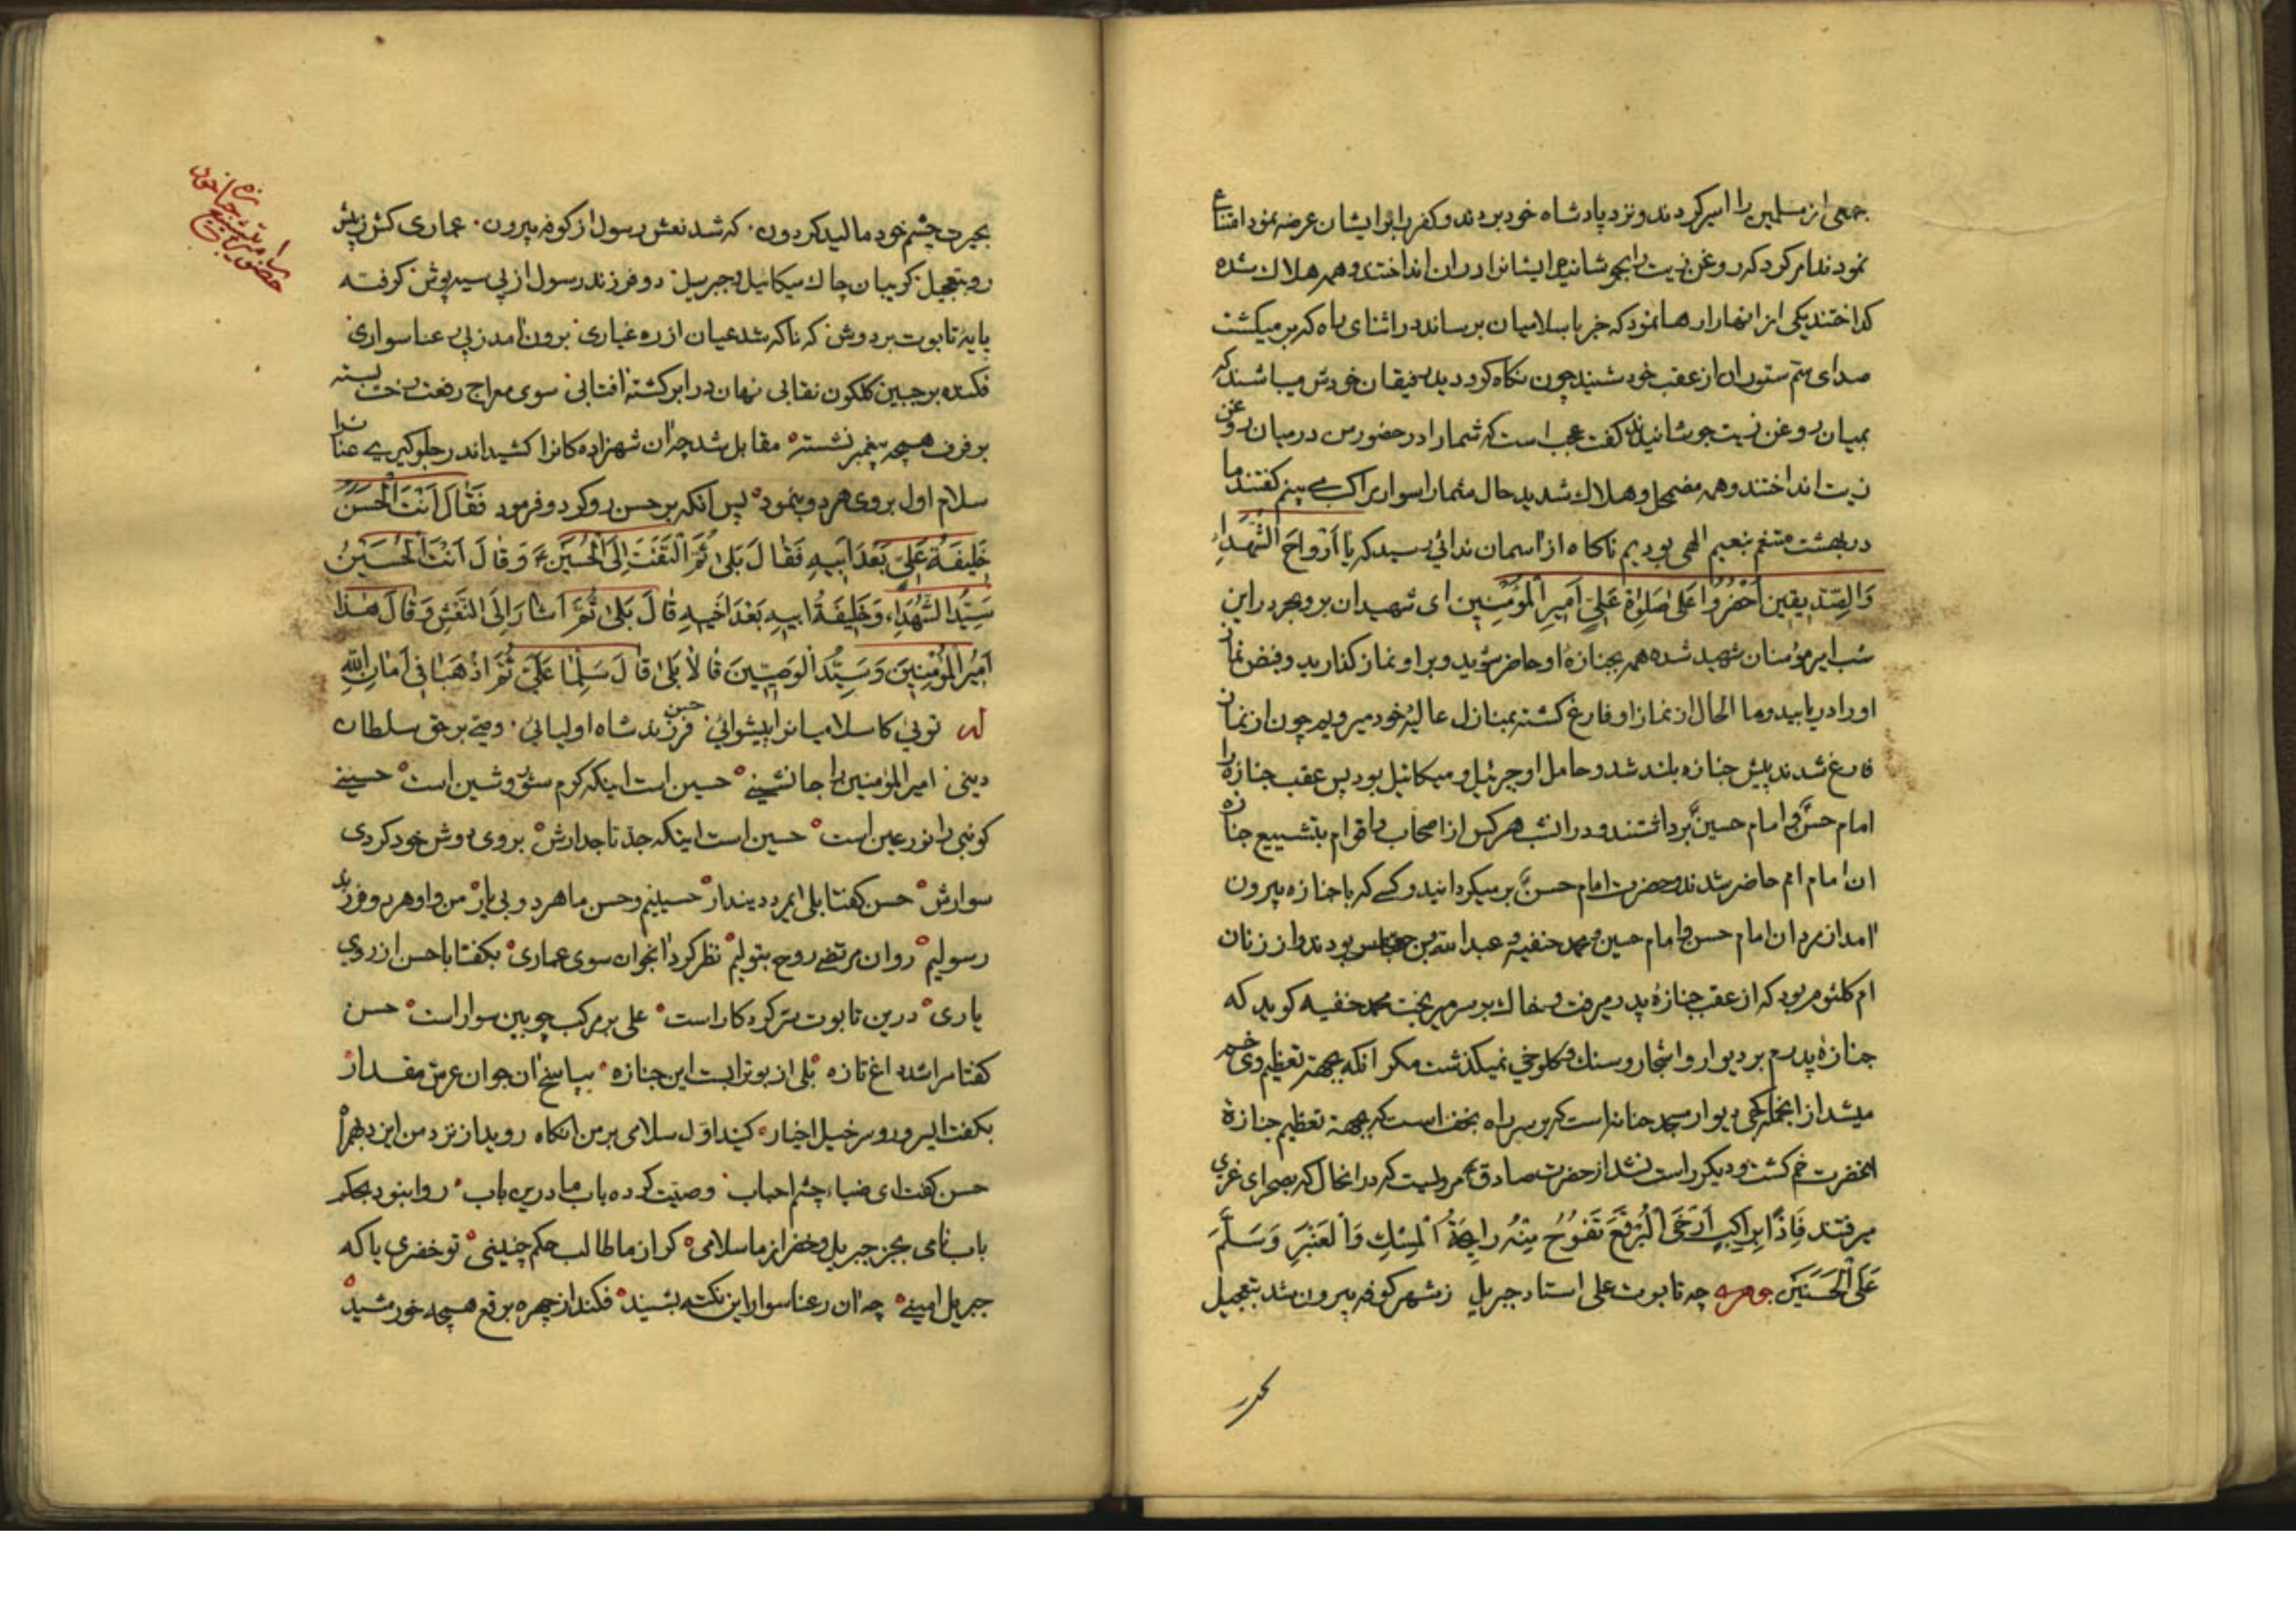 جمعی از مسلمین را اسیر کردند و نزد پادشاه خود بردند و کفر را بر ایشان عرضه نمود امتناع
نمودند امر کرد که روغن زیت را بجوشانند و ایشانرا در ان انداختند و همه هلاك شده
کداختند یکی از انها را رها نمود که خبر باسلامیان برساند در اثنای راه که بر میکشت
صدای سم ستوران از عقب خود شنید چون نکاه کرد دید رفیقان خودش میباشند که
بمیان روغن زیت جوشانیدند کفت عجب است که شما را در حضور من در میان روغن
زیت انداختند و همه مضمحل و هلاك شدید حال شما را سوار مراکب می بینم کفتند ما
در بهشت متنعم بنعیم الهی بودیم ناکاه از اسمان ندائی رسید که یا اَرْواحَ الشُّهَداءِ
وَالصِّدّیقینَ اُحْضُرُوا عَلیٰ صَلوٰةِ عَلِیٍّ اَمیرِ الْمُؤْمِنینَ ای شهیدان بر و بحر در این
شب امیر مؤمنان شهید شده همه بجنازهٔ او حاضر شوید و بر او نماز کذارید و فیض نماز
او را دریابید و ما الحال از نماز او فارغ کشته بمنازل عالیهٔ خود میرویم چون از نماز
فارغ شدند پیش جنازه بلند شد و حامل او جبرئیل و میکائیل بود پس عقب جنازه را
امام حسن و امام حسین برداشتند و در انشب هر کس از اصحاب و اقوام بتشییع جنازه
ان امام امم حاضر شدند حضرت امام حسن بر میکردانید و کسی که با جنازه بیرون
امد از مردان امام حسن و امام حسین و محمد حنفیه و عبدالله بن عباس بودند و از زنان
ام کلثوم بود که از عقب جنازهٔ پدر میرفت و خاك بر سر میریخت محمد حنفیه کوید که
جنازهٔ پدرم بر دیوار و اشجار و سنك و کلوخی نمیکذشت مکر انکه بجهت تعظیم وی خم
میشد از انجمله کجی دیوار مسجد حنانه است که بر سر راه نجف است که بجهت تعظیم جنازهٔ
انحضرت خم کشت و دیکر راست نشد از حضرت صادق مرویست که در انحال که بصحرای غری
میرفتند فَاِذاً بِراکِبٍ اَرْخَی الْبُرْقَعَ تَفُوحُ مِنْهُ رایِحَةُ الْمِسْكِ وَالْعَنْبَرِ وَسَلَّمَ
عَلَی الْحَسَنَیْنِ جوهری چه تابوت علی استاد جبریل زشهر کوفه بیرون شد بتعجیل
بحیرت چشم خود مالید کردون کە شد نعش رسول از کوفه بیرون عماری کش ز پیش
رو بتعجیل کریبان چاك میکائیل و جبریل دو فرزند رسول از پی سیه پوش کرفته
پایهٔ تابوت بر دوش که ناکه شد عیان از ره غباری برون امد ز پی رعنا سواری
فکنده بر جبین کلکون نقابی نهان در ابر کشته افتابی سوی معراج رفعت رخت بسته
بر فرف همچه پیغمبر نشسته مقابل شد چه ان شهزادکانرا کشید اندر جلوکیری عنانرا
سلام اول بروی هر دو بنمود پس انکه بر حسن رو کرد و فرمود فَقٰالَ اَنْتَ الْحَسَنُ
خَلیفَةُ عَلِیٍّ بَعْدَ اَبیهِ فَقٰالَ بَلیٰ ثُمَّ الْتَفَتَ اِلَی الْحُسَیْنِ وَقٰالَ اَنْتَ الْحُسَیْنُ
سَیِّدُ الشُّهَداءِ وَخَلیفَةُ اَبیهِ بَعْدَ اَخیهِ قٰالَ بَلیٰ ثُمَّ اَشارَ اِلَی النَّعْشِ وَقٰالَ هٰذا
اَمیرُ الْمُؤْمِنینَ وَسَیِّدُ الْوَصِیّینَ قٰالا بَلیٰ قٰالَ سَلِّما عَلَیَّ ثُمَّ اذْهَبا فی اَمانِ اللّٰهِ
له توئی کاسلامیانرا پیشوائی حسن فرزند شاه اولیائی وصی بر حق سلطان
دینی امیر المؤمنین را جانشینی حسین است اینکه کرم شور و شین است حسینی
کو نبی را نور عین است حسین است اینکه جد تاجدارش بروی دوش خود کردی
سوارش حسن کفتا بلی ایمرد دیندار حسینیم و حسن ما هر دو بی یار من و او هر دو فرزند
رسولیم روان مرتضی روح بتولیم نظر کرد انجوان سوی عماری بکفتا با حسن از روی
یاری درین تابوت سر کردکار است علی بر مرکب چوبین سوار است حسن
کفتا مرا شد داغ تازه بلی از بوترابست این جنازه بپاسخ ان جوان عرش مقدار
بکفت ایسرور و سرخیل اخیار کنید اول سلامی بر من انکاه روید از نزد من این دم
حسن کفت ای ضیاء چشم احباب وصیت کرده باب ما درین باب روا نبود بحکم
باب نامی بجز جبریل و خضر از ما سلامی کر از ما طالب حکم چنینی تو خضری یا که
جبریل امینی چه ان رعنا سوار این نکته بشنید فکند از چهره برقع همچه خورشید